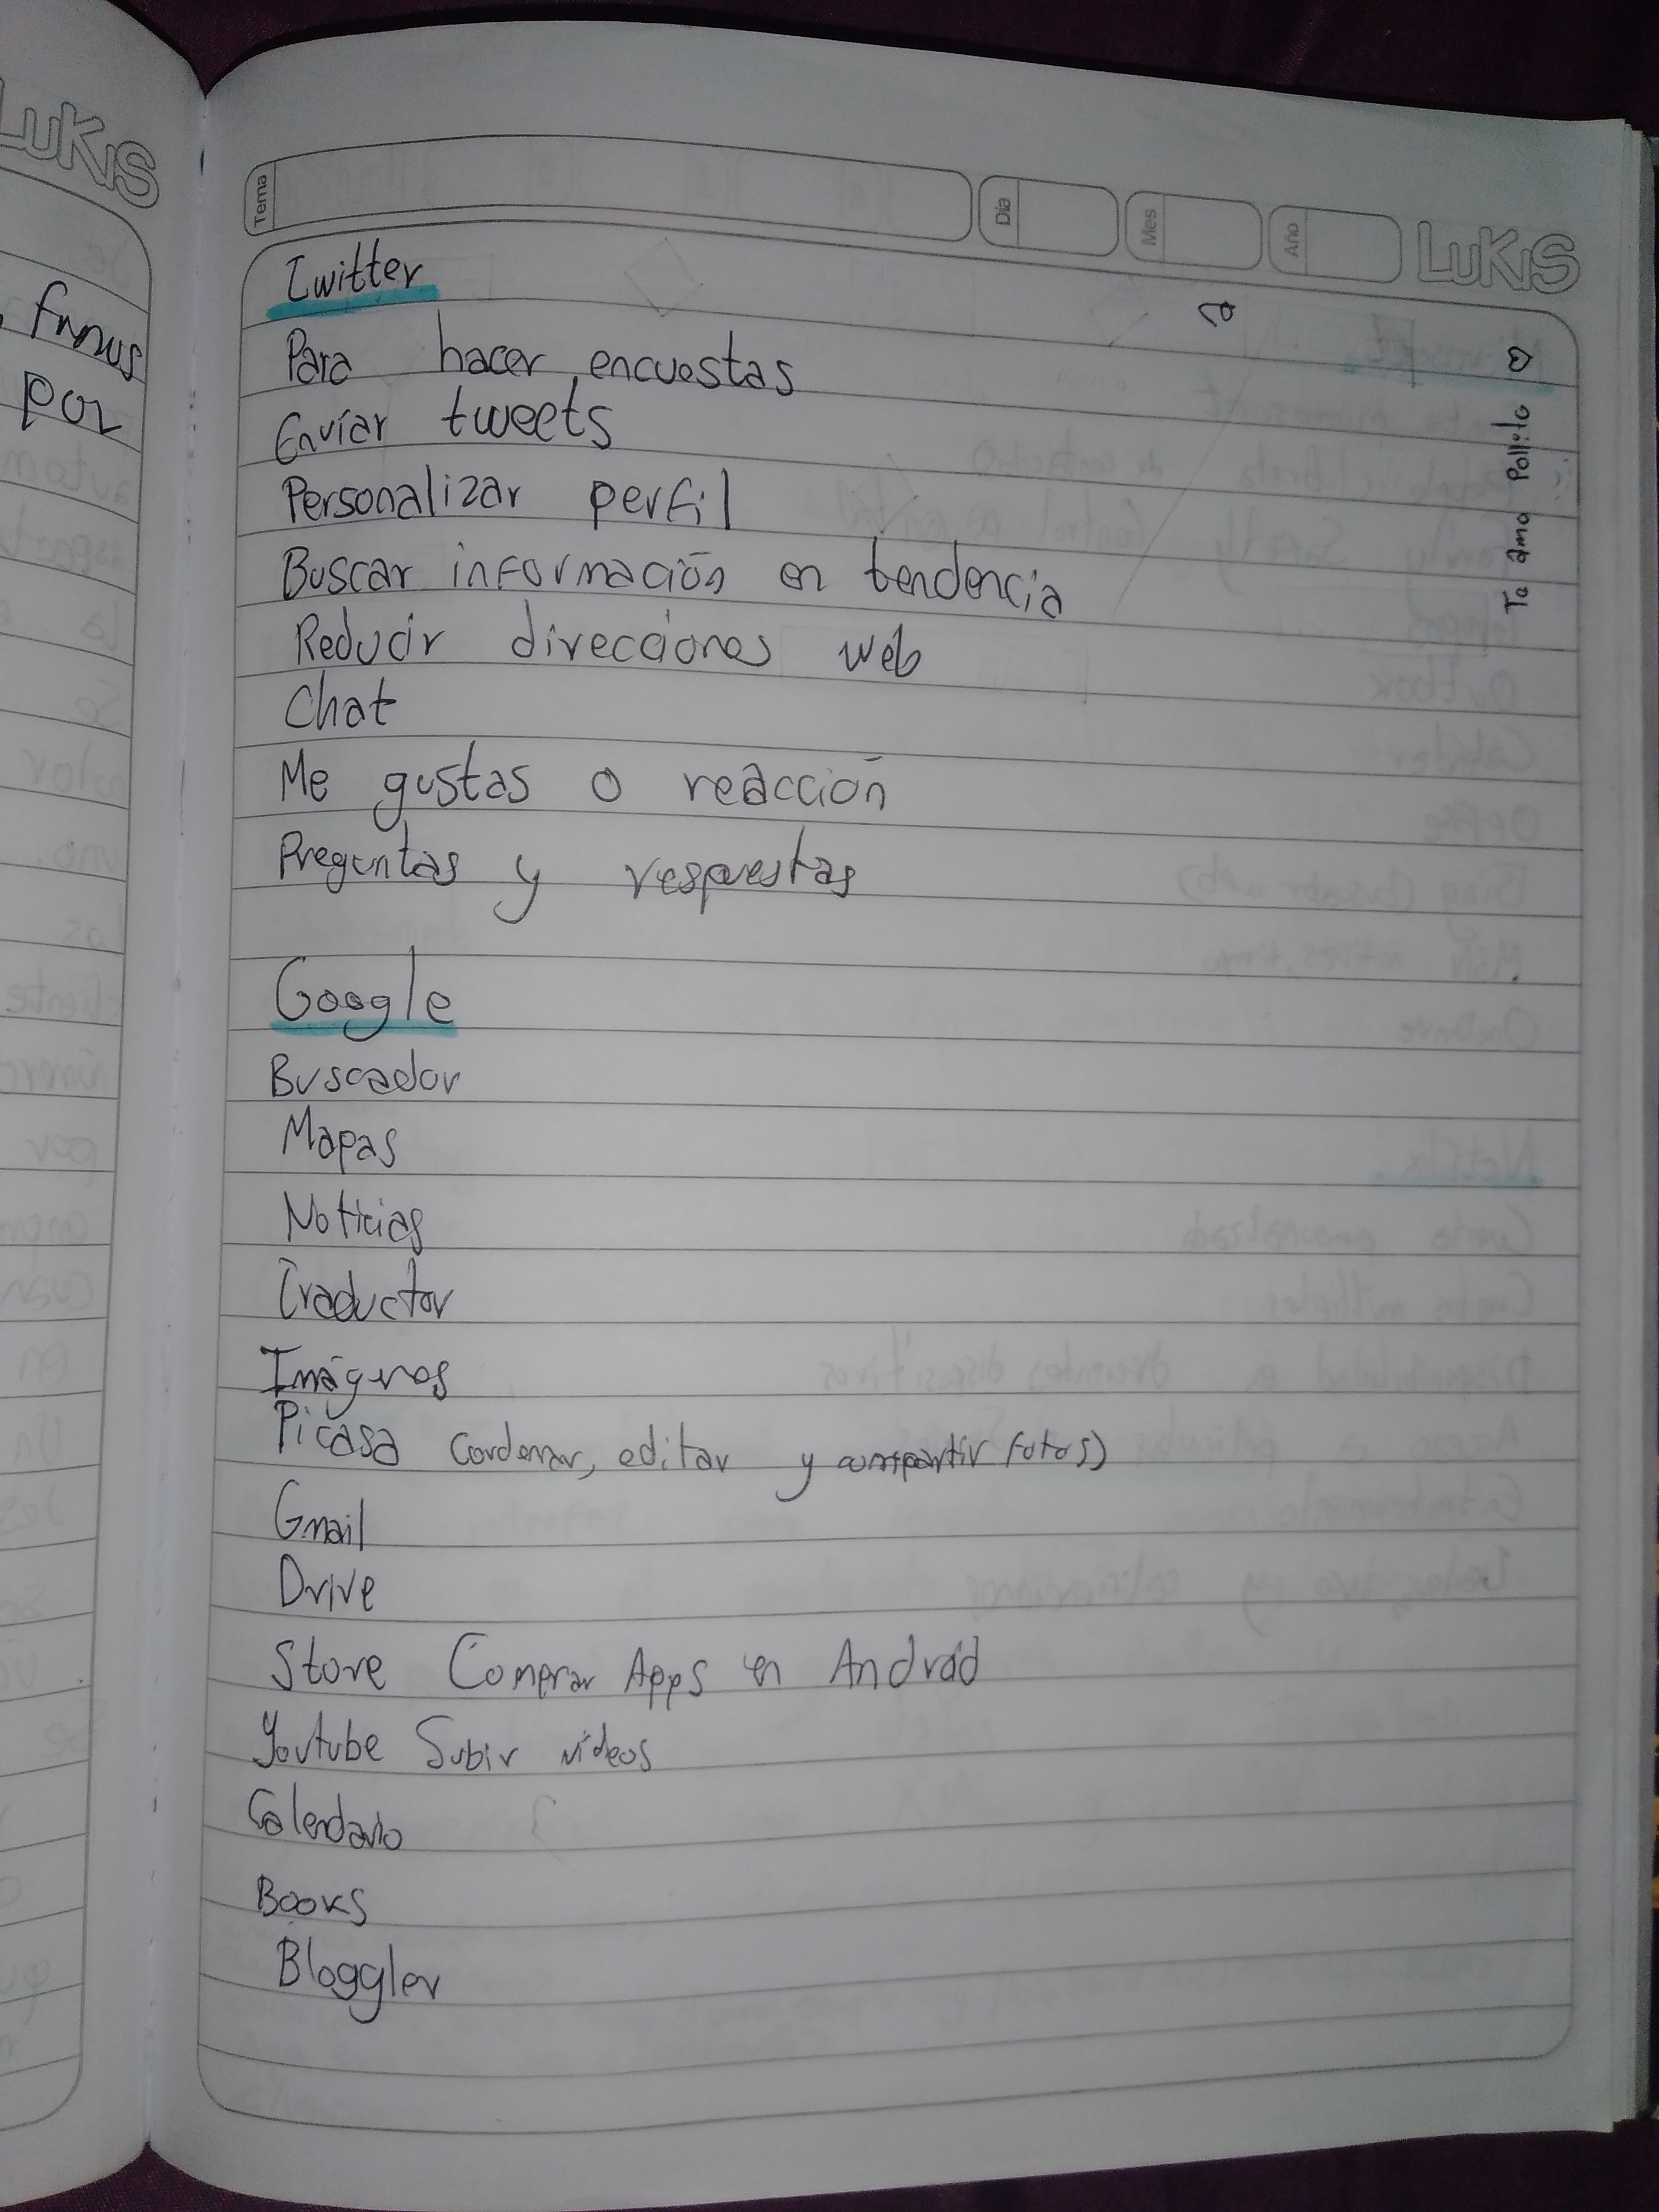 LUKIS
Tema
Día
Mes
Año
LUKIS
Te amo Pollito
por
Twitter
Para hacer encuestas
Enviar tweets
Personalizar perfil
Buscar información en tendencia
Reducir direcciones web
Chat
Me gustas o reacción
Preguntas y respuestas
Google
Buscador
Mapas
Noticias
Traductor
Imágenes
Picasa (ordenar, editar y compartir fotos)
Gmail
Drive
Store Comprar Apps en Android
Youtube Subir videos
Calendario
Books
Bloggler